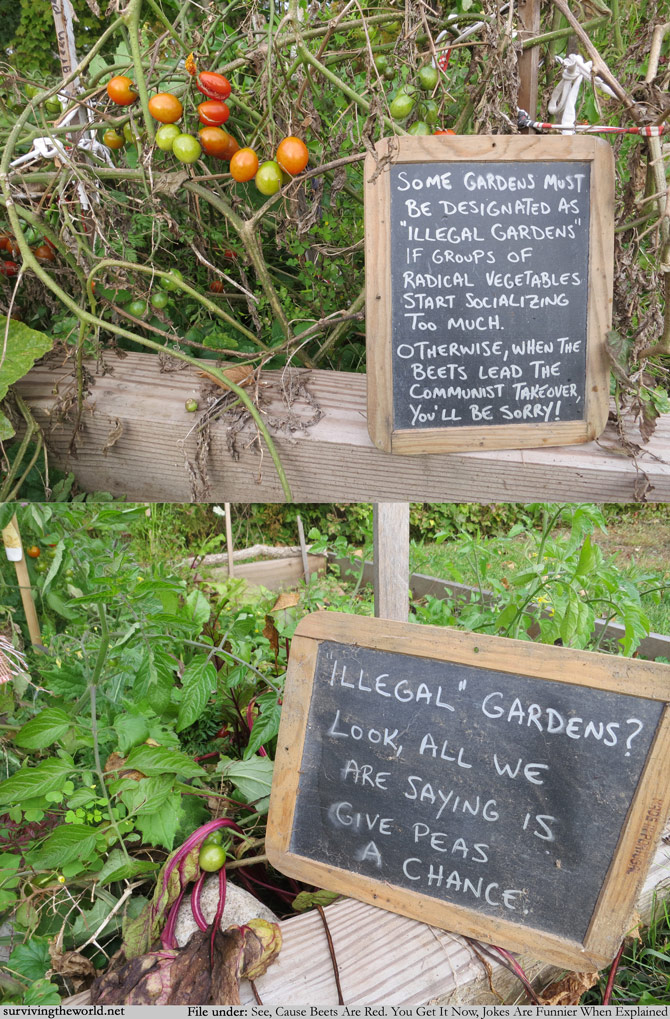 SOME GARDENS MUST
BE DESIGNATED AS
"ILLEGAL GARDENS"
IF GROUPS OF
RADICAL VEGETABLES
START SOCIALIZING
TOO MUCH.
OTHERWISE, WHEN THE
BEETS LEAD THE
COMMUNIST TAKEOVER,
YOU'LL BE SORRY!
"ILLEGAL" GARDENS?
LOOK, ALL WE
ARE SAYING IS
GIVE PEAS
A CHANCE.
survivingtheworld.net
File under: See, Cause Beets Are Red. You Get It Now, Jokes Are Funnier When Explained